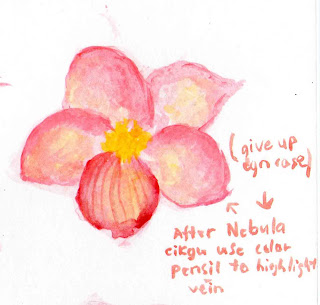 (give up
dgn rose)
After Nebula
cikgu use color
pensil to highlight
vein